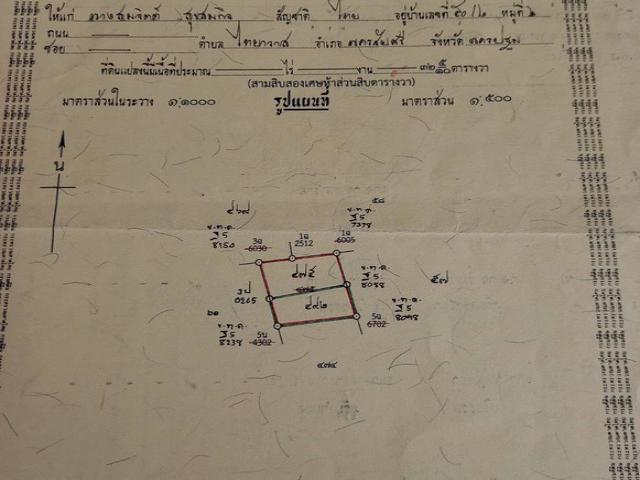 ให้แก่ นางสมจิตต์ สุขสมกิจ สัญชาติ ไทย อยู่บ้านเลขที่ ๕๐/๒ หมู่ที่
ถนน
ซอย ตำบล ไทยาวาส อำเภอ นครชัยศรี จังหวัด นครปฐม
ที่ดินแปลงนี้มีเนื้อที่ประมาณ ไร่ งาน ๓๒ ๕/๑๐ ตารางวา
(สามสิบสองเศษห้าส่วนสิบตารางวา)
มาตราส่วนในระวาง ๑:๑๐๐๐ รูปแผนที่ มาตราส่วน ๑:๕๐๐
น
๕๘
๔๖๙ ฐ 5
ฐ 5 3อ 1อ 1อ 7378
8150 6030 2512 6005
๔๗๕
ฐ 5 ๕๗
8088
3ป
0265 ๔๙๒
๖๑ ฐ 5
ฐ 5 5น 5อ 8098
8238 4302 6702